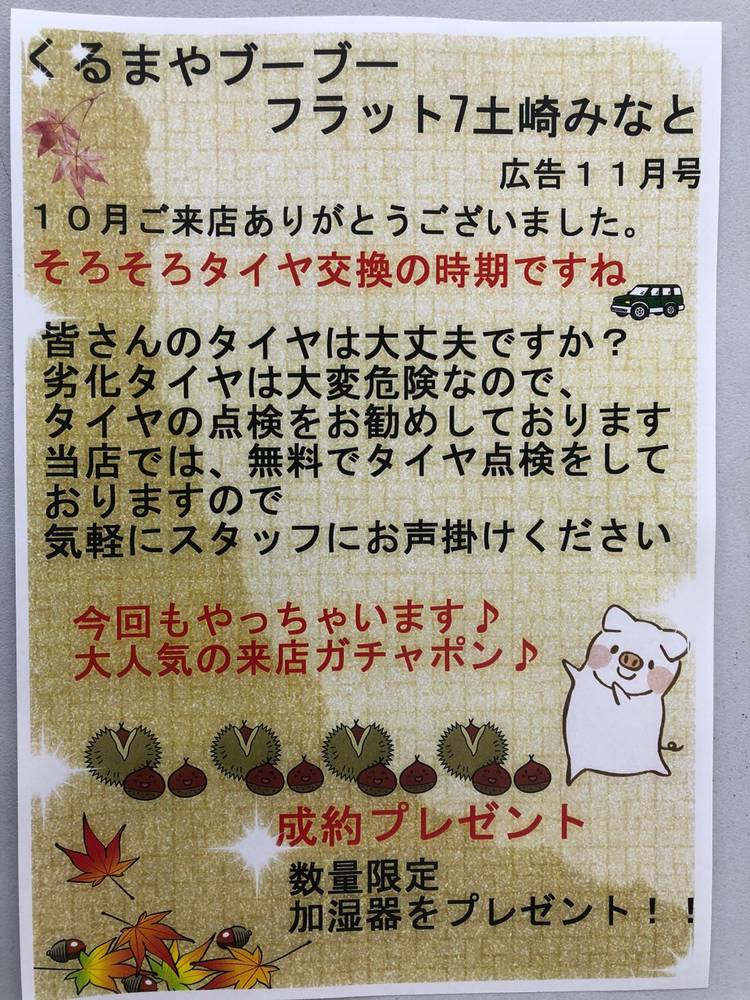 くるまやブーブー
フラット7土崎みなと
広告１１月号
１０月ご来店ありがとうございました。
そろそろタイヤ交換の時期ですね
皆さんのタイヤは大丈夫ですか？
劣化タイヤは大変危険なので、
タイヤの点検をお勧めしております
当店では、無料でタイヤ点検をして
おりますので
気軽にスタッフにお声掛けください
今回もやっちゃいます♪
大人気の来店ガチャポン♪
成約プレゼント
数量限定
加湿器をプレゼント！！